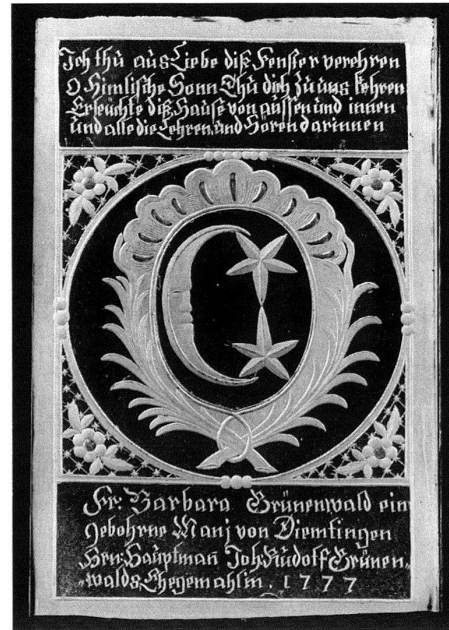 Ich thů aůs Liebe diß Fenster verehren
O Himlische Sonn Thů dich zů uns kehren
Erleůchte diß Hauße von aussen und innen
und alle die Lehren und Hören darinnen
Fr: Barbara Grünenwald ein
gebohrne Manj von Diemtingen
Hrn: Haůptmañ Joh: Růdolf Grünen„
„walds Ehegemahlin. 1777